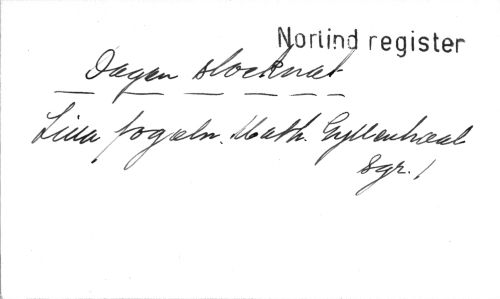 Norlind register
Dagen slocknat
Lilla fogeln. Math. Gyllenhaal
Sgr. 1